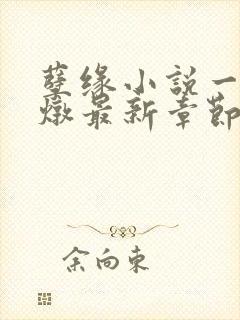 孽缘小説一
燉最新章節
余向東